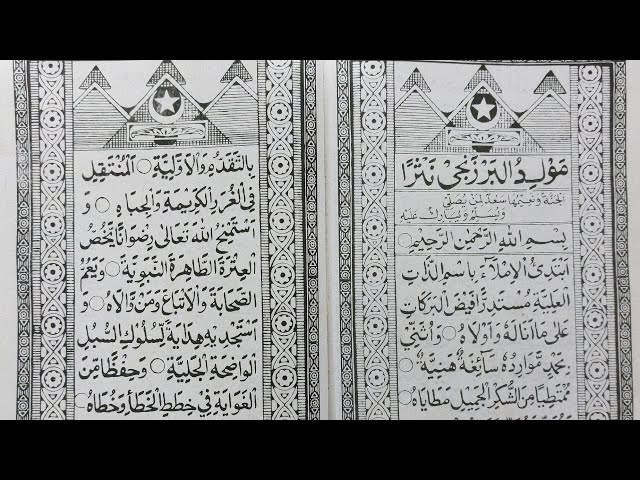 مَوْلِدُ الْبَرْزَنْجِي نَثْرًا
الجَنَّةُ وَنَعِيمُهَا سَعْدٌ لِمَنْ يُصَلِّي
وَيُسَلِّمُ وَيُبَارِكُ عَلَيْهِ
بِسْمِ اللّٰهِ الرَّحْمٰنِ الرَّحِيْمِ
اَبْتَدِئُ الْاِمْلَاءَ بِاسْمِ الذَّاتِ
الْعَلِيَّةِ مُسْتَدِرًّا فَيْضَ الْبَرَكَاتِ
عَلٰى مَا اَنَالَهُ وَاَوْلَاهُ ○ وَاُثَنِّيْ
بِحَمْدٍ مَوَارِدُهُ سَآئِغَةٌ هَنِيَّةٌ ○
مُمْتَطِيًا مِنَ الشُّكْرِ الْجَمِيْلِ مَطَايَاهُ
بِالتَّقَدُّمِ وَالْاَوَّلِيَّةِ ○ اَلْمُنْتَقِلِ
فِي الْغُرَرِ الْكَرِيْمَةِ وَالْجِبَاهِ ○ وَ
اَسْتَمْنِحُ اللّٰهَ تَعَالٰى رِضْوَانًا يَخُصُّ
الْعِتْرَةَ الطَّاهِرَةَ النَّبَوِيَّةَ ○ وَيَعُمُّ
الصَّحَابَةَ وَالْاَتْبَاعَ وَمَنْ وَّالَاهُ ○ وَ
اَسْتَجْدِيْهِ هِدَايَةً لِسُلُوْكِ السُّبُلِ
الْوَاضِحَةِ الْجَلِيَّةِ ○ وَحِفْظًا مِّنَ
الْغَوَايَةِ فِيْ خِطَطِ الْخَطَأِ وَخُطَاهُ ○